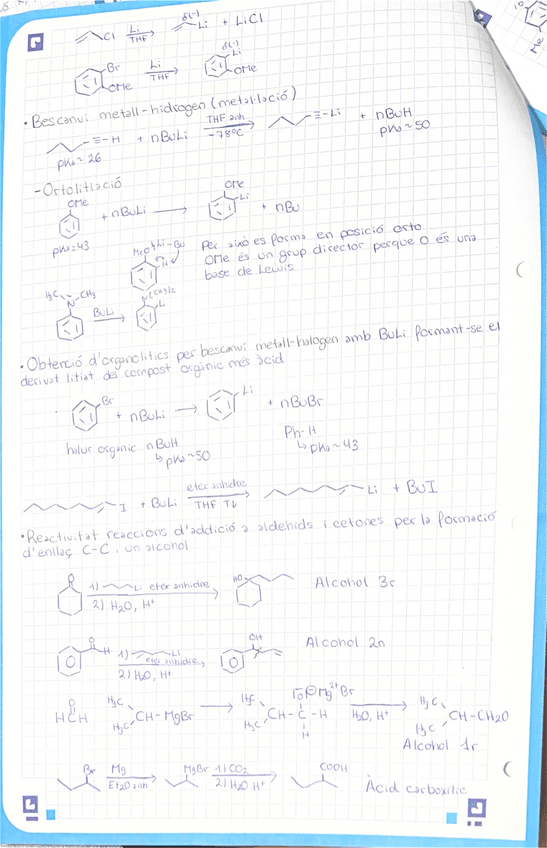 Cl Li THF δ(-) Li + LiCl
Br OMe Li THF δ(-) Li OMe
• Bescanvi metall-hidrogen (metal·lació)
≡-H + nBuLi THF anh -78ºC ≡-Li + nBuH
pKa≈26 pKa≈50
- Ortolitiació
OMe + nBuLi OMe Li + nBu
pKa≈43
MeO Li-Bu H Per això es forma en posició orto
OMe és un grup director perque O és una
base de Lewis
H3C N CH3 BuLi N(CH3)2 Li
• Obtenció d'organolítics per bescanvi metall-halogen amb BuLi formant-se el
derivat litiat del compost orgànic més àcid
Br + nBuLi Li + nBuBr
halur orgànic nBuH Ph-H
↳ pKa≈50 ↳ pKa≈43
I + BuLi eter anhidre THF T↓ Li + BuI
• Reactivitat reaccions d'addició a aldehids i cetones per la formació
d'enllaç C-C i un alcohol
O 1) Li eter anhidre 2) H2O, H+ HO Alcohol 3r
O H 1) Li eter anhidre 2) H2O, H+ OH Alcohol 2n
O HCH H3C H3C CH-MgBr H3C H3C CH-C-H H O⊖Mg2+Br H2O, H+ H3C H3C CH-CH2O
Alcohol 1r
Br Mg Et2O anh MgBr 1) CO2 2) H2O H+ COOH Àcid carboxílic